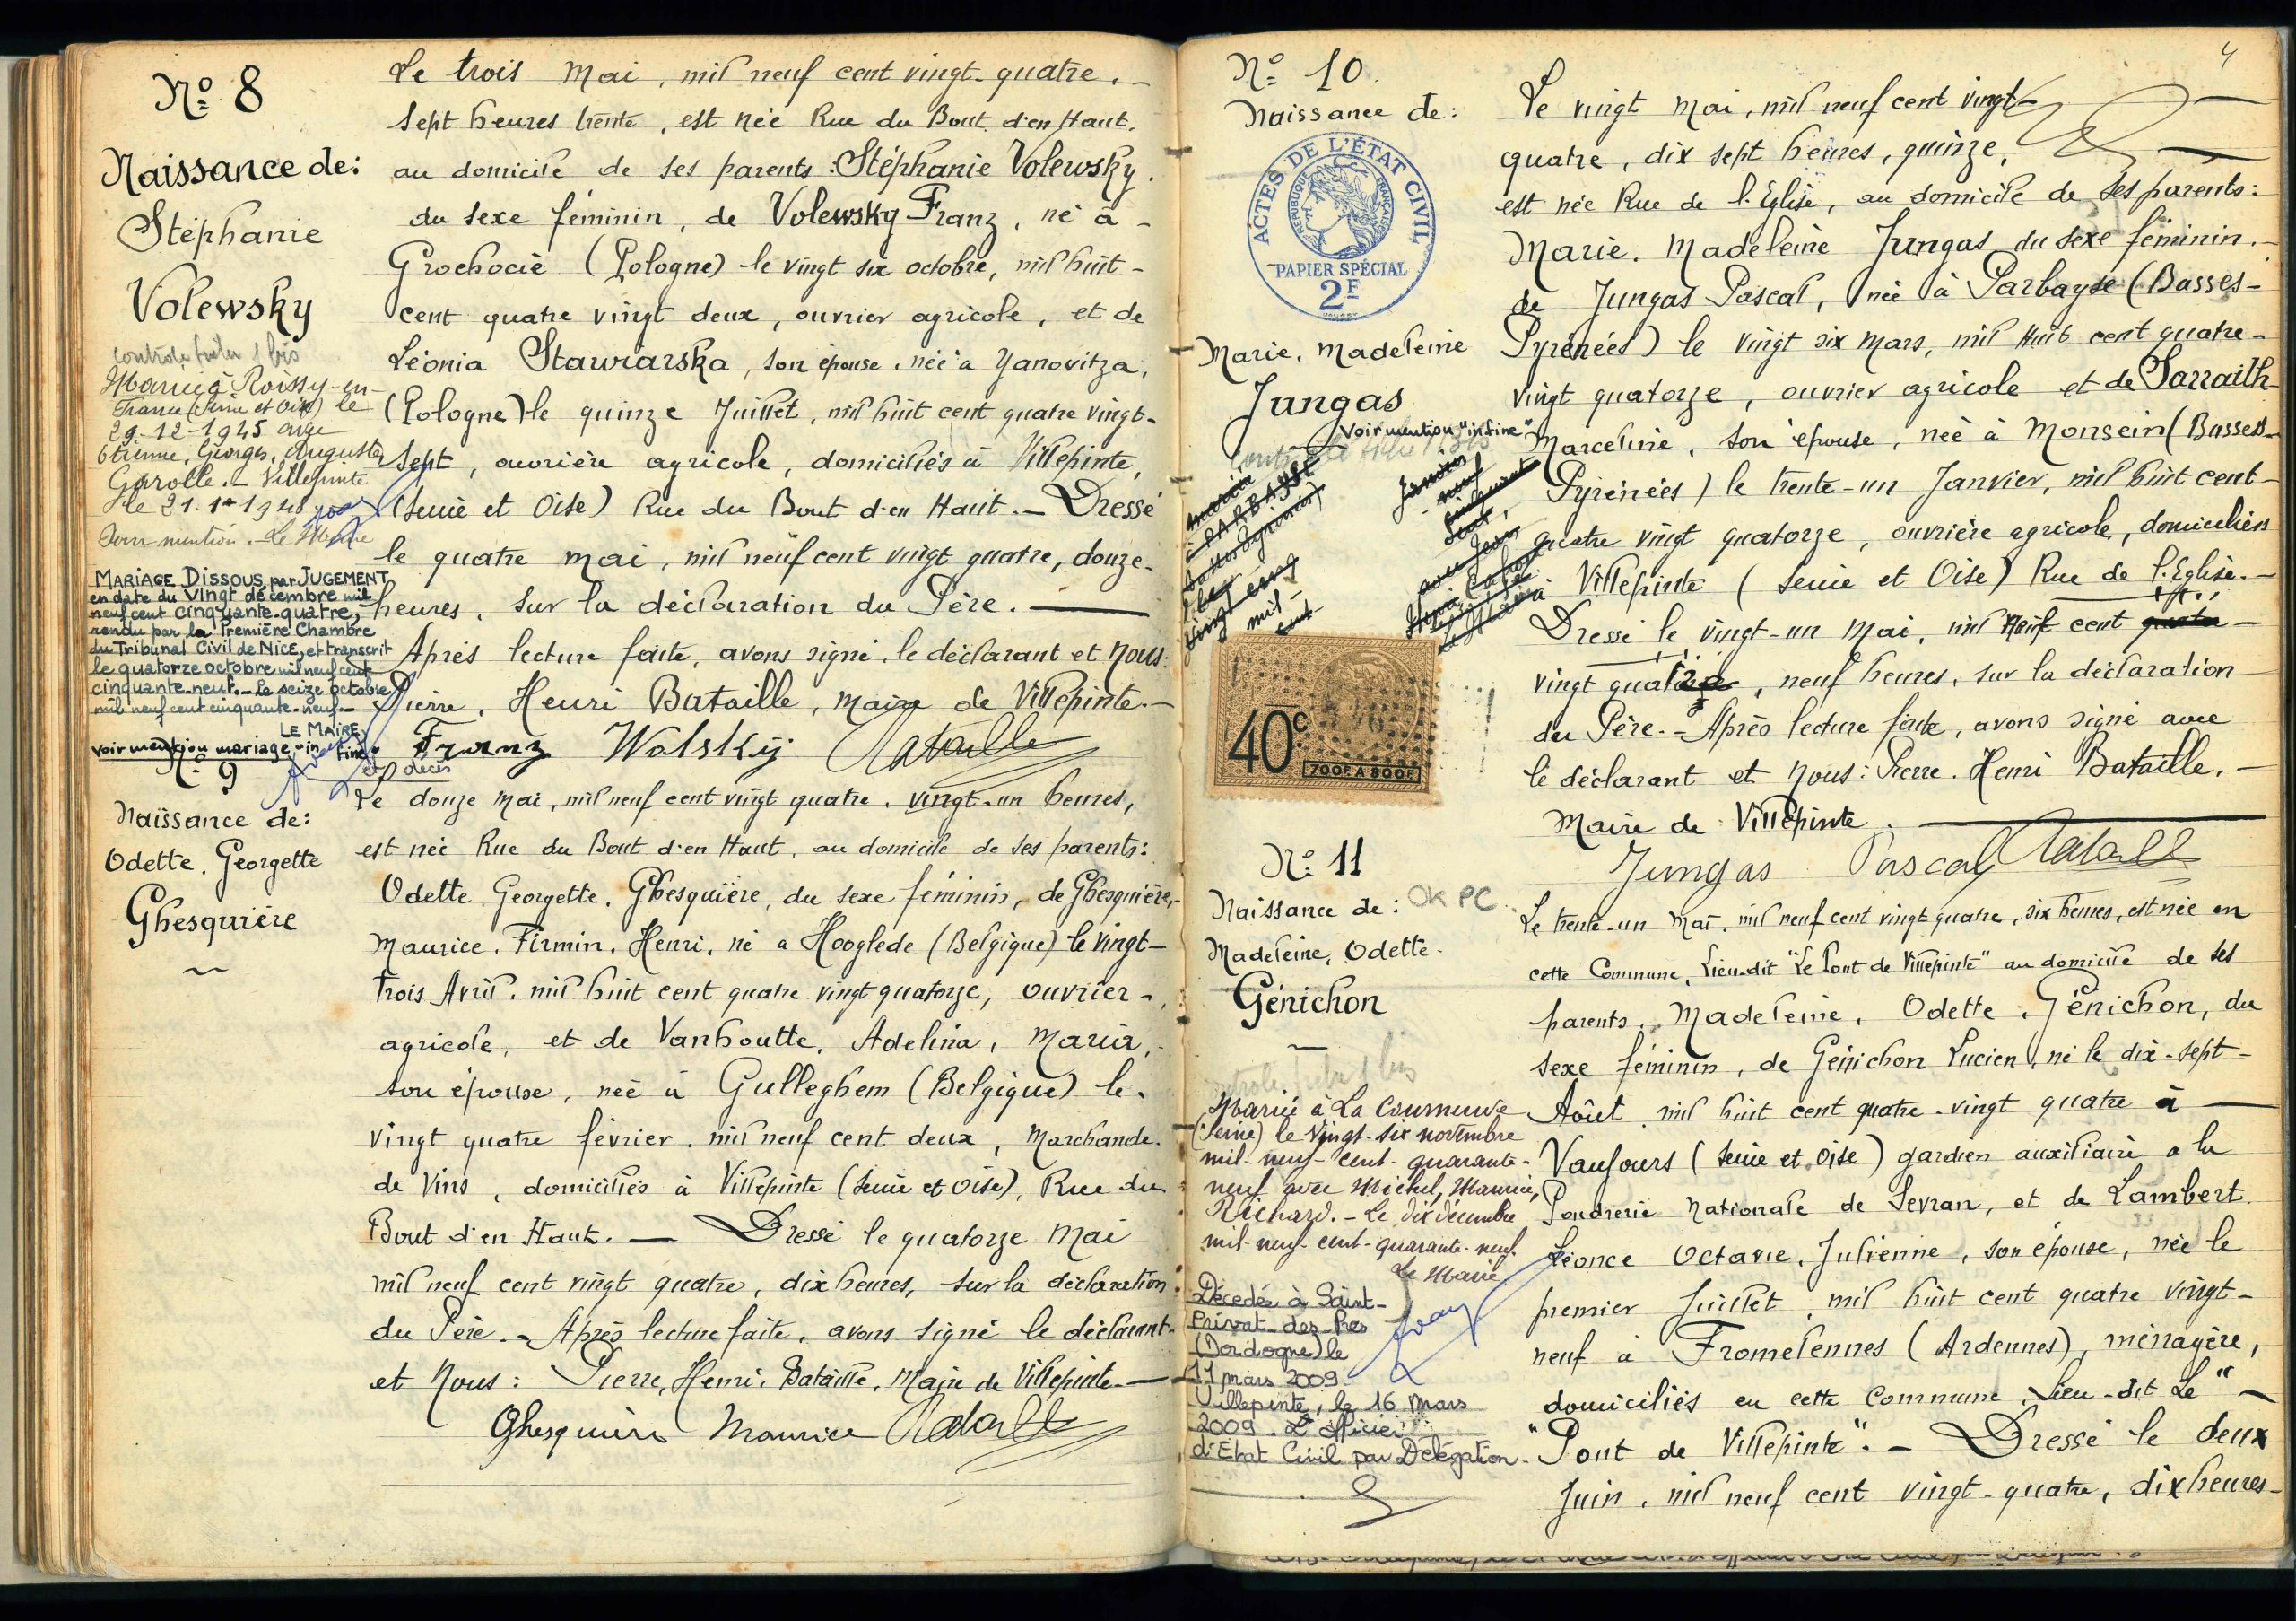 Nº 8
Naissance de:
Stéphanie
Volewsky
contrôle 1 bis
Mariée à Roissy-en-
France (Seine et Oise) le
29-12-1945 avec
Etienne, Georges, Auguste
Garolle. - Villepinte
le 21-1-1946
Le Maire
MARIAGE DISSOUS par JUGEMENT
en date du vingt décembre mil
neuf cent cinquante-quatre,
rendu par la Première Chambre
du Tribunal Civil de NICE, et transcrit
le quatorze octobre mil neuf cent
cinquante-neuf. - Le seize octobre
mil neuf cent cinquante-neuf. -
LE MAIRE,
voir mention mariage "in fine"
et décès
Le trois Mai, mil neuf cent vingt-quatre. -
sept heures trente, est née Rue du Bout d'en Haut.
au domicile de ses parents: Stéphanie Volewsky.
du sexe féminin, de Volewsky Franz, né à -
Grochocie (Pologne) le vingt six octobre, mil huit -
cent quatre vingt deux, ouvrier agricole, et de
Léonia Stawiarska, son épouse, née à Yanovitza,
(Pologne) le quinze Juillet, mil huit cent quatre vingt-
sept, ouvrière agricole, domiciliés à Villepinte,
(Seine et Oise) Rue du Bout d'en Haut. - Dressé
le quatre Mai, mil neuf cent vingt quatre, douze-
heures, sur la déclaration du Père. -
Après lecture faite, avons signé, le déclarant et Nous:
Pierre, Henri Bataille, Maire de Villepinte. -
Franz Wolsky Bataille
Nº 9
Naissance de:
Odette. Georgette
Ghesquière
Le douze Mai, mil neuf cent vingt quatre. vingt-un heures,
est née Rue du Bout d'en Haut, au domicile de ses parents:
Odette. Georgette. Ghesquière, du sexe féminin, de Ghesquière,-
Maurice. Firmin. Henri, né à Hooglede (Belgique) le vingt-
trois Avril, mil huit cent quatre vingt quatorze, ouvrier -
agricole, et de Vanhoutte, Adelina, Maria,
son épouse, née à Gulleghem (Belgique) le.
vingt quatre février, mil neuf cent deux, Marchande.
de Vins, domiciliés à Villepinte (Seine et Oise), Rue du
Bout d'en Haut. - Dressé le quatorze Mai
mil neuf cent vingt quatre, dix heures, sur la déclaration
du Père. - Après lecture faite, avons signé le déclarant.
et Nous: Pierre, Henri. Bataille. Maire de Villepinte. -
Ghesquière Maurice Bataille
4
Nº 10.
Naissance de:
ACTES DE L'ÉTAT CIVIL
RÉPUBLIQUE FRANÇAISE
PAPIER SPÉCIAL
2F
Marie. Madeleine
Jungas
Voir mention "in fine"
40c
700F À 800F
Le vingt Mai, mil neuf cent vingt-
quatre, dix sept heures, quinze,
est née Rue de l'Eglise, au domicile de ses parents:
Marie. Madeleine Jungas du sexe féminin. -
de Jungas Pascal, née à Parbayse (Basses-
Pyrénées) le vingt six Mars, mil huit cent quatre-
vingt quatorze, ouvrier agricole et de Sarrailh
Marceline, son épouse, née à Monsein (Basses-
Pyrénées) le trente-un Janvier, mil huit cent-
quatre vingt quatorze, ouvrière agricole, domiciliés
à Villepinte (Seine et Oise) Rue de l'Eglise. -
Dressé le vingt-un Mai, mil neuf cent quatre -
vingt quatre, neuf heures, sur la déclaration
du Père. - Après lecture faite, avons signé avec
le déclarant et Nous: Pierre. Henri Bataille. -
Maire de Villepinte.
Jungas Pascal Bataille
Nº 11
Naissance de: OK PC
Madeleine, Odette.
Génichon
contrôle 1 bis
Mariée à La Courneuve
(Seine) le vingt-six novembre
mil-neuf-cent-quarante-
neuf avec Michel, Maurice,
Richard. - Le dix décembre
mil-neuf-cent-quarante-neuf.
Le Maire
Décédée à Saint-
Privat-des-Prés
(Dordogne) le
11 mars 2009.
Villepinte, le 16 Mars
2009. L'officier
d'Etat Civil par Délégation.
Le trente-un Mai, mil neuf cent vingt quatre, six heures, est née en
cette Commune, Lieu-dit "Le Pont de Villepinte" au domicile de ses
parents, Madeleine, Odette, Génichon, du
sexe féminin, de Génichon Lucien, né le dix-sept-
Août, mil huit cent quatre-vingt quatre à -
Vaujours (Seine et Oise) gardien auxiliaire à la
Poudrerie Nationale de Sevran, et de Lambert.
Léonce Octavie, Julienne, son épouse, née le
premier Juillet, mil huit cent quatre vingt-
neuf à Fromelennes (Ardennes), ménagère,
domiciliés en cette Commune, Lieu-dit Le "-
"Pont de Villepinte". - Dressé le deux
Juin, mil neuf cent vingt-quatre, dix heures-